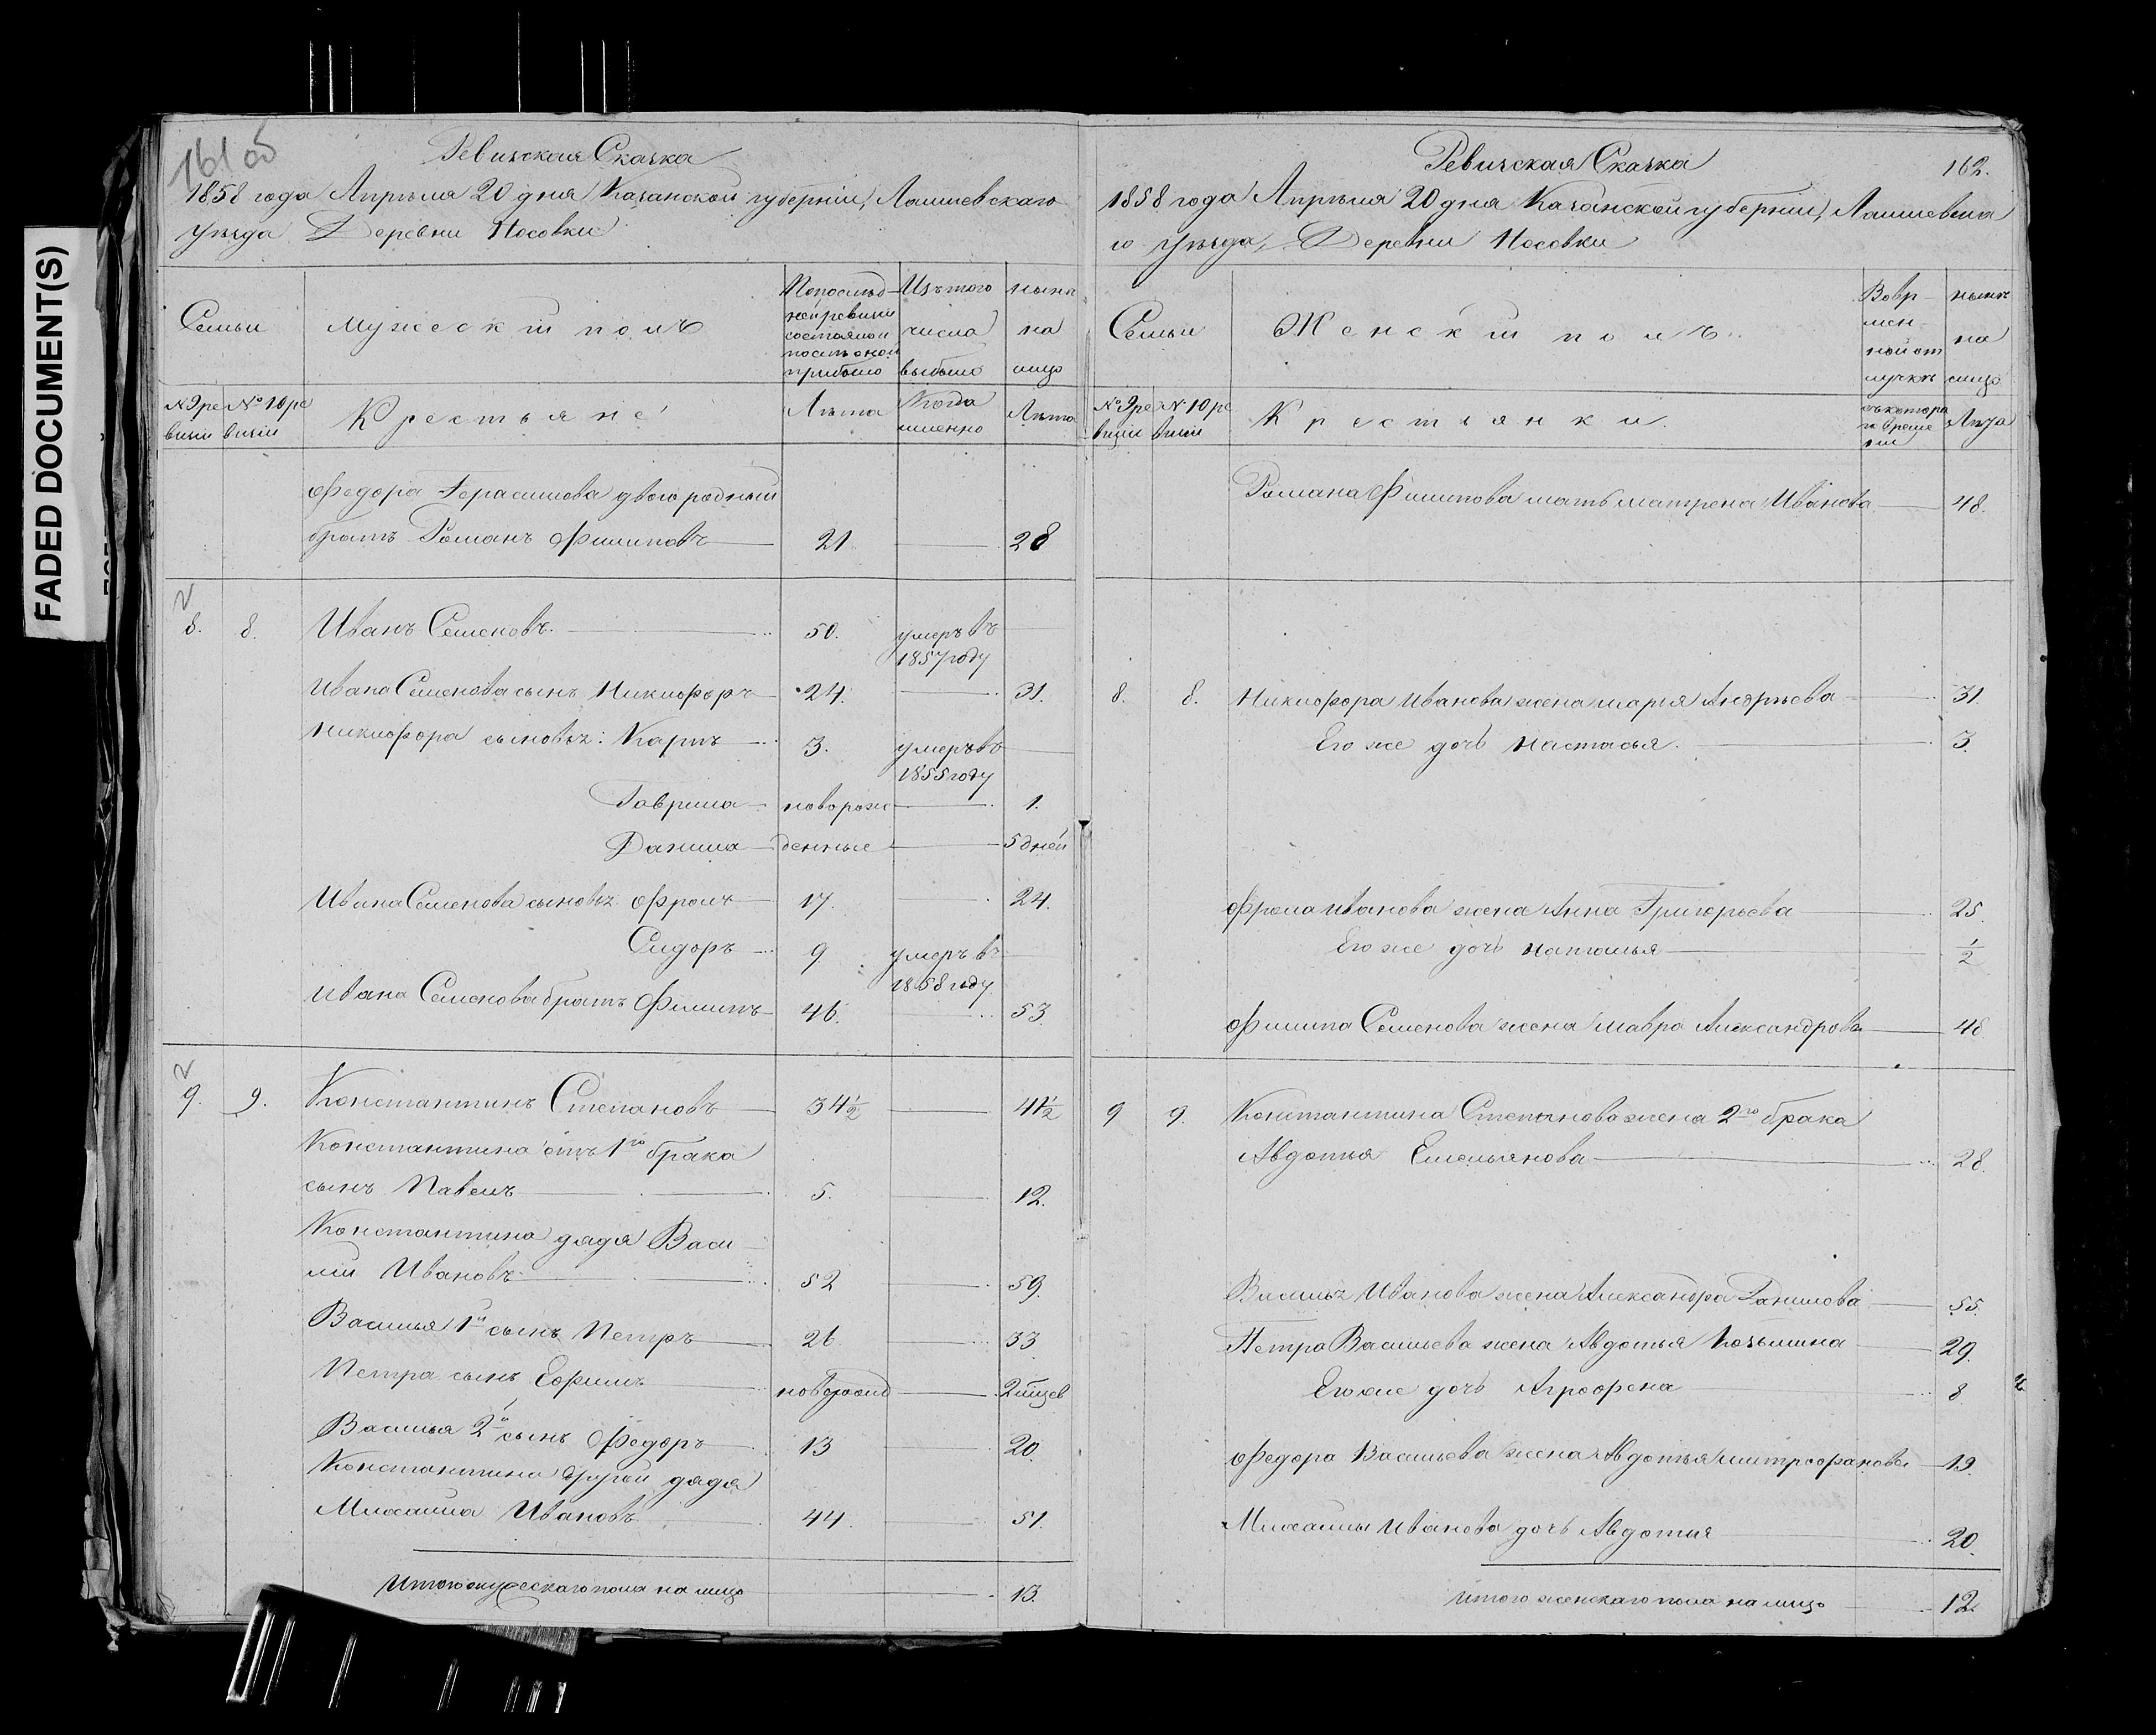 FADED DOCUMENT(S)
161 об
Ревизская Сказка
1858 года Апрѣля 20 дня Казанской губерніи, Лаишевскаго
уѣзда Деревни Носовки
Семьи
Мужескій полъ
По послѣд-
ней ревизіи
состояло и
послѣ оной
прибыло
Изъ того
числа
выбыло
нынѣ
на
лицо
№ 9 ре
визіи
№ 10 ре
визіи
Крестьяне
Лѣта
Когда
именно
Лѣта
Федора Герасимова двоюродный
братъ Романъ Филиповъ 21 28
8. 8. Иванъ Семеновъ. 50. умеръ въ
1857 году
Ивана Семенова сынъ Никифоръ 24. 31.
Никифора сыновья: Карпъ 3. умеръ въ
1855 году
Гаврила новорож 1.
Данила денные 5 дней
Ивана Семенова сыновья Фролъ 17. 24.
Сидоръ 9 умеръ въ
1858 году
Ивана Семенова братъ Филипъ 46. 53.
9. 9. Константинъ Степановъ 34½ 41½
Константина отъ 1го брака
сынъ Павелъ 5. 12.
Константина дядя Васи
лій Ивановъ 52 59.
Василья 1й сынъ Петръ 26 33
Петра сынъ Ефимъ новорожд 2 мѣсцев
Василья 2й сынъ Федоръ 13 20.
Константина другой дядя
Михайла Ивановъ 44. 51.
Итого мужескаго пола на лицо 13.
162.
Ревизская Сказка
1858 года Апрѣля 20 дня Казанской губерніи, Лаишевска
го уѣзда, Деревни Носовки
Семьи
Женскій полъ.
Во вр
мен
ной от
лучкѣ
нынѣ
на
лицо
№ 9 ре
визіи
№ 10 ре
визіи
Крестьянки.
съ котора
го време
ни
Лѣта
Романа Филипова мать Матрена Иванова 48.
8. 8. Никифора Иванова жена Марія Андрѣева 31.
Его же дочь Настасья. 3.
Фрола Иванова жена Анна Григорьева 25.
Его же дочь Наталья ½
Филипа Семенова жена Мавра Александрова 48
9 9. Константина Степанова жена 2го брака
Авдотья Емельянова 28.
Василья Иванова жена Александра Данилова 55.
Петра Васильева жена Авдотья Козьмина 29.
Его же дочь Агрофена 8.
Федора Васильева жена Авдотья Митрофанова 19.
Михайлы Иванова дочь Авдотья 20.
Итого женскаго пола на лицо 12.